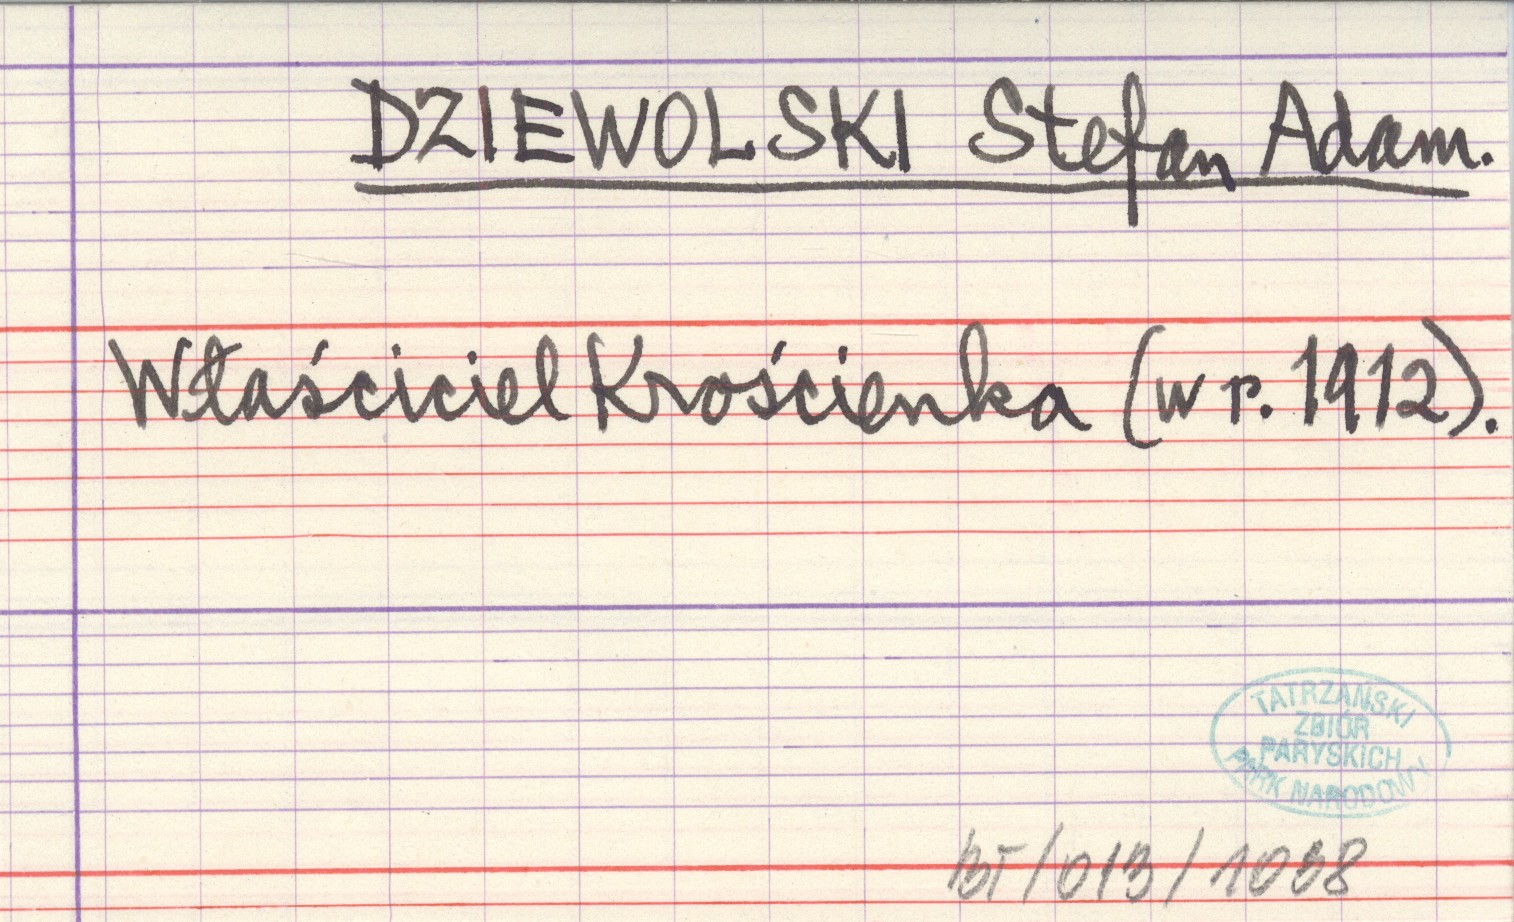 DZIEWOLSKI Stefan Adam.
Właściciel Krościenka (w r. 1912).
TATRZAŃSKI
ZBIÓR
PARYSKICH
PARK NARODOWY
BT/013/1038